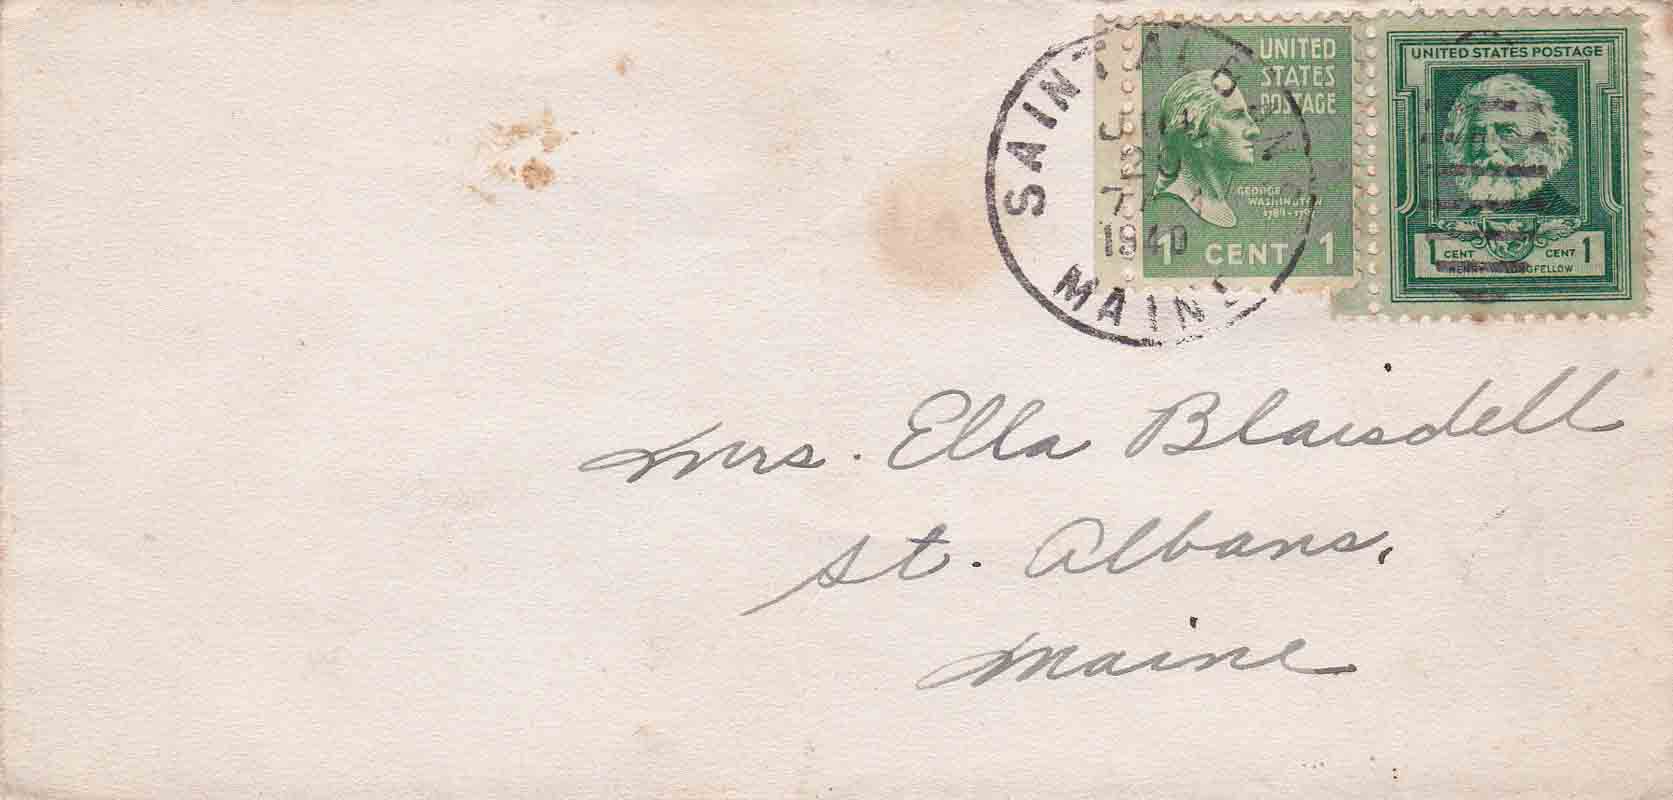 SAINT ALBANS
1940
MAINE
UNITED
STATES
POSTAGE
GEORGE
WASHINGTON
1 CENT 1
UNITED STATES POSTAGE
1 CENT CENT 1
HENRY W. LONGFELLOW
Mrs. Ella Blaisdell
St. Albans,
Maine